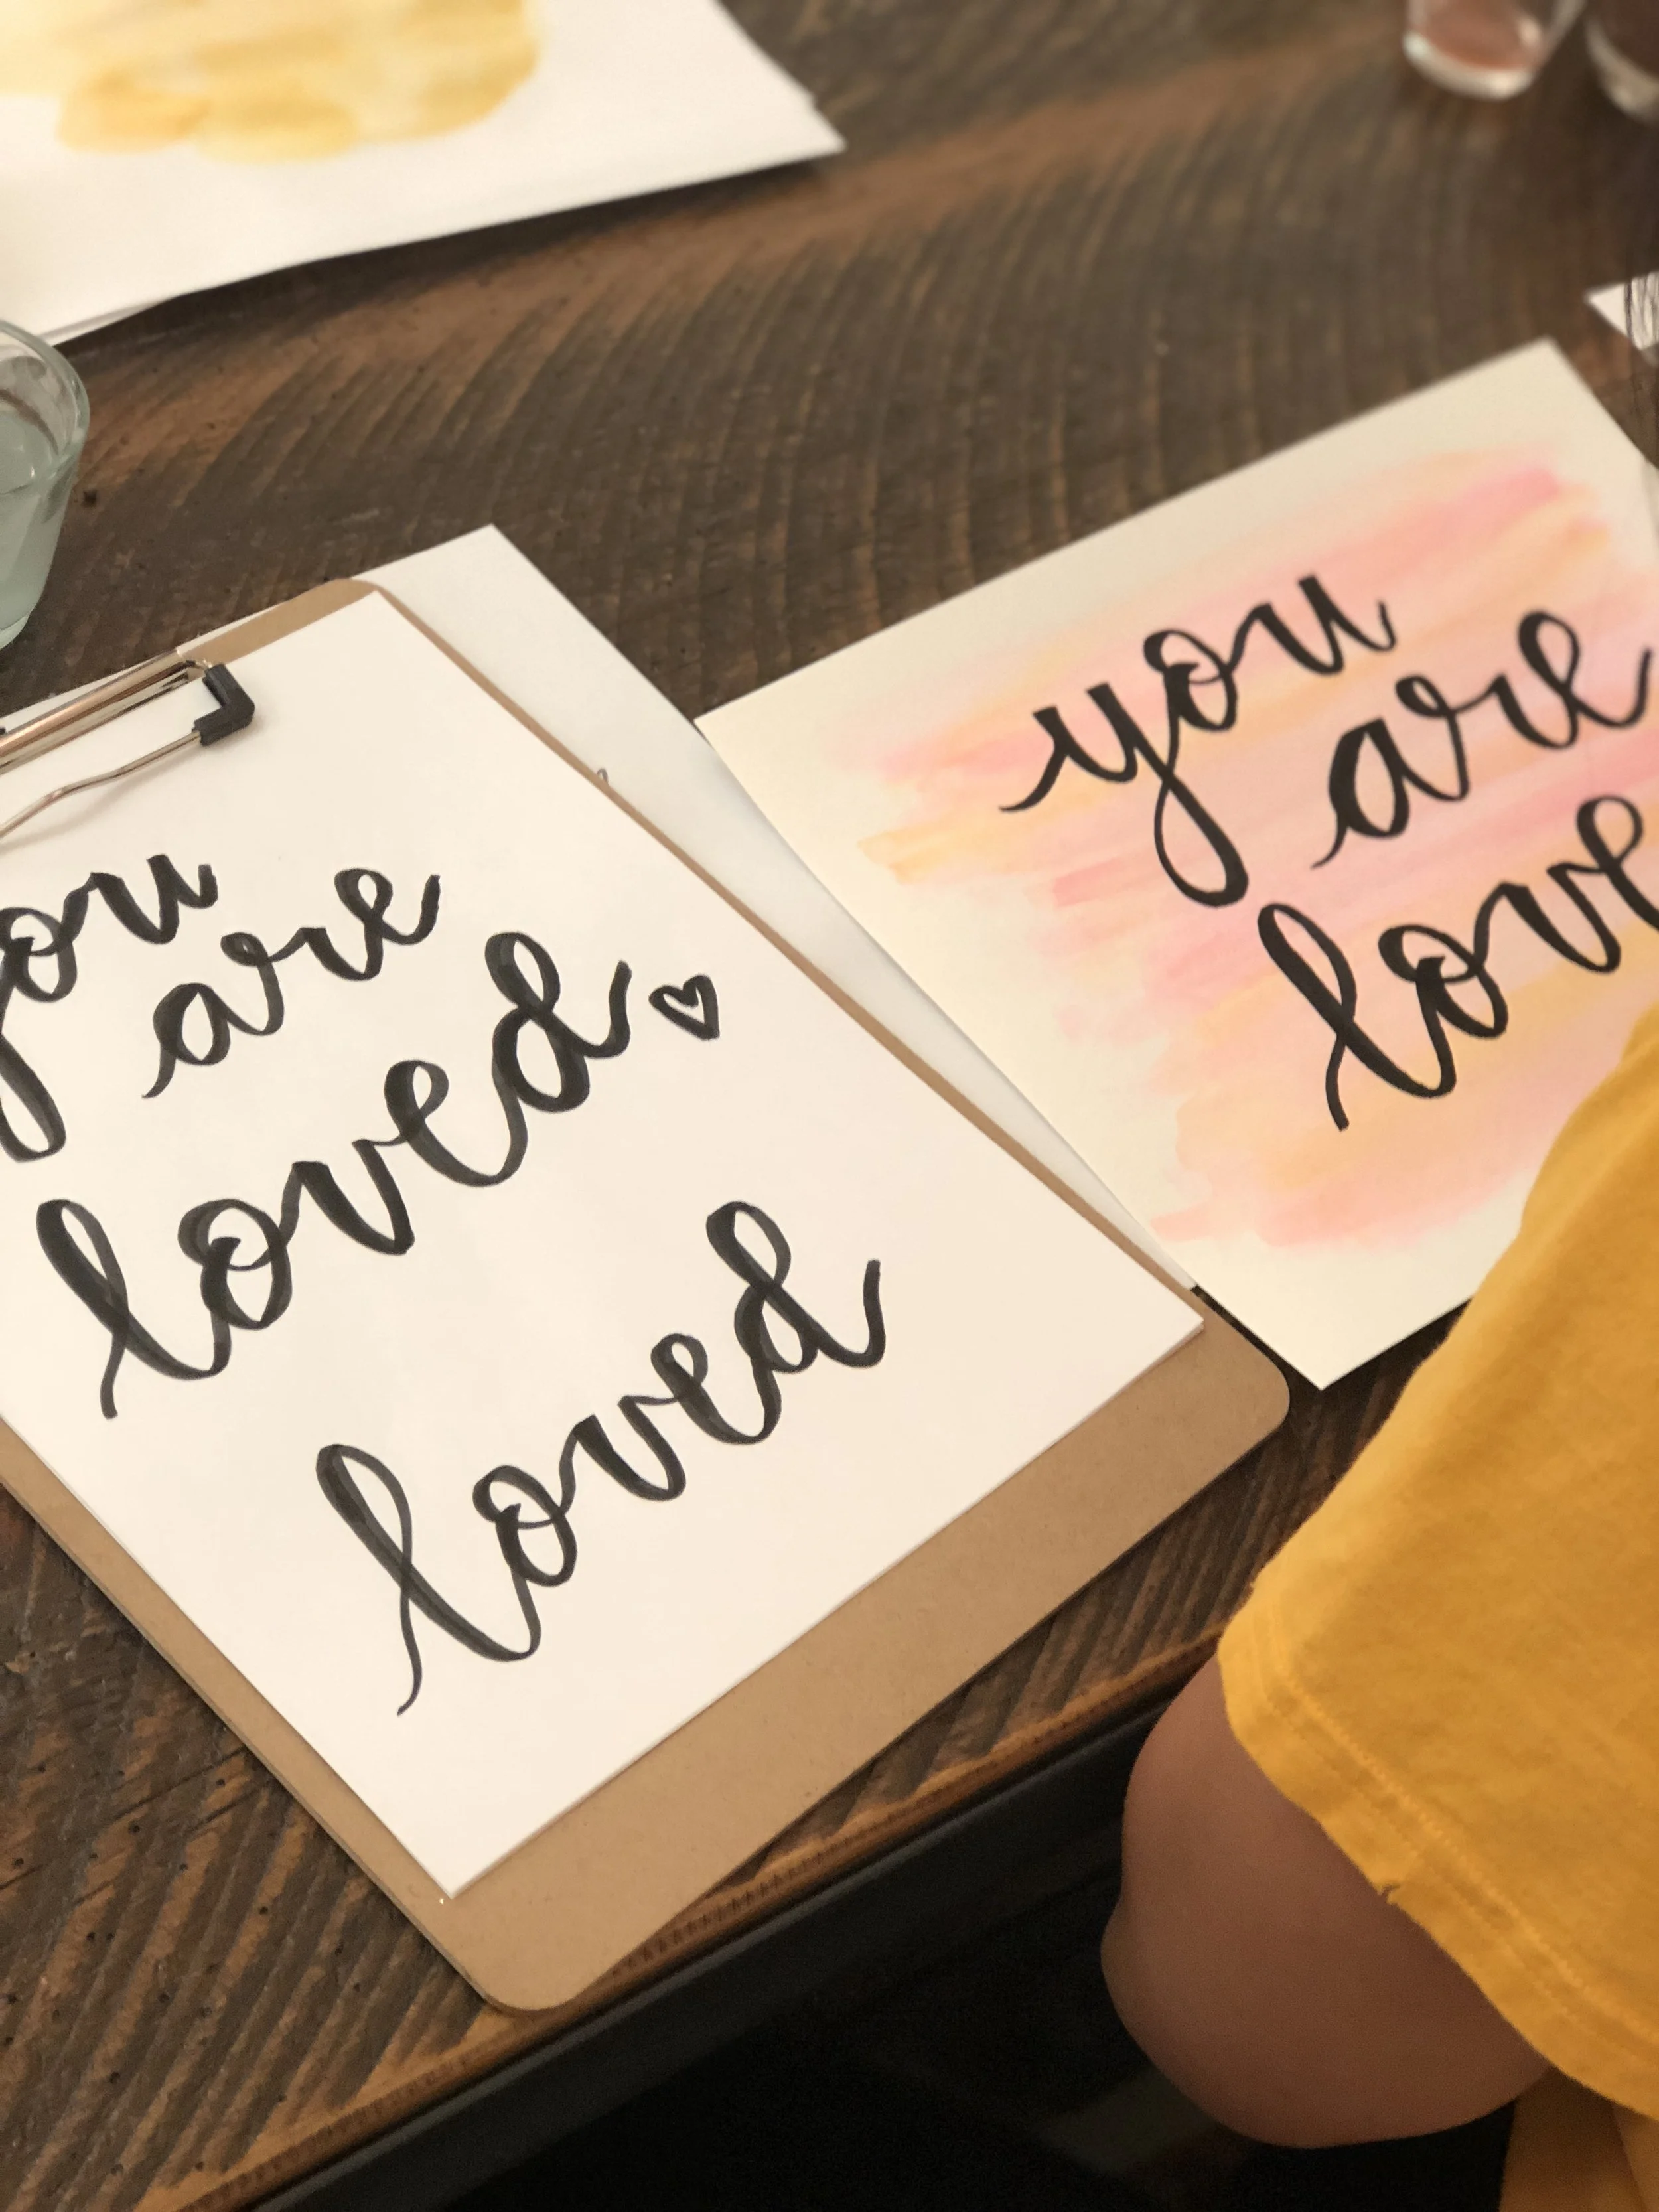 you
are
loved ♡
loved
you
are
love